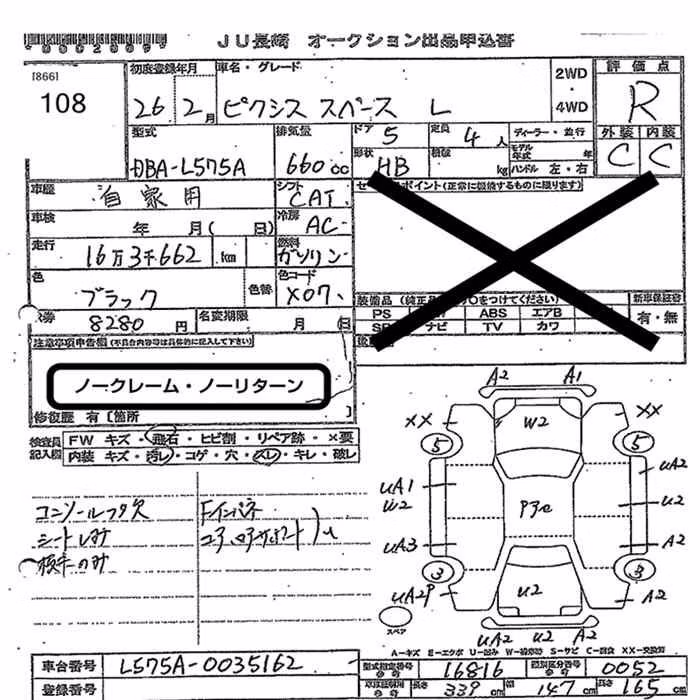 JU長崎 オークション出品申込書
[866]
108
初度登録年月 車名・グレード
26年 2月 ピクシス スペース L
2WD・4WD
評価点
R
外装 内装
C C
型式 DBA-L575A
排気量 660cc
ドア 5
定員 4人
ディーラー・並行
形状 HB
積載 kg
モデル年式 年
ハンドル 左・右
車歴 自家用
シフト CAT
車検 年 月( 日)
冷房 AC
走行 16万3千662 km
燃料 ガソリン
色 ブラック
色替
色コード X07
8280円
名変期限 月 日
セールスポイント(正常に機能するものに限ります)
装備品(純正品に○をつけてください)
PS ABS エアB
SR ナビ TV カワ
新車保証書
有・無
注意事項申告欄(不具合内容等は具体的に記入して下さい)
ノークレーム・ノーリターン
修復歴 有〔箇所 〕
検査員記入欄
FW キズ・飛石・ヒビ割・リペア跡・×要
内装 キズ・汚れ・コゲ・穴・スレ・キレ・破レ
コンソールフタ欠
シートしみ
Fインパネ
コアサポート
A2 A1
XX W2 XX
5 5
UA1 W2 P3e UA2 U2
UA3 A2
3 3
UA2P U2 A2
スペア
UA2 U2 A2
A-キズ E-エクボ U-凹み W-補修跡 S-サビ C-腐食 XX-交換済
車台番号 L575A-0035162
型式指定番号 16816
類別区分番号 0052
登録番号
長さ 339cm 幅 147cm 高さ 165cm